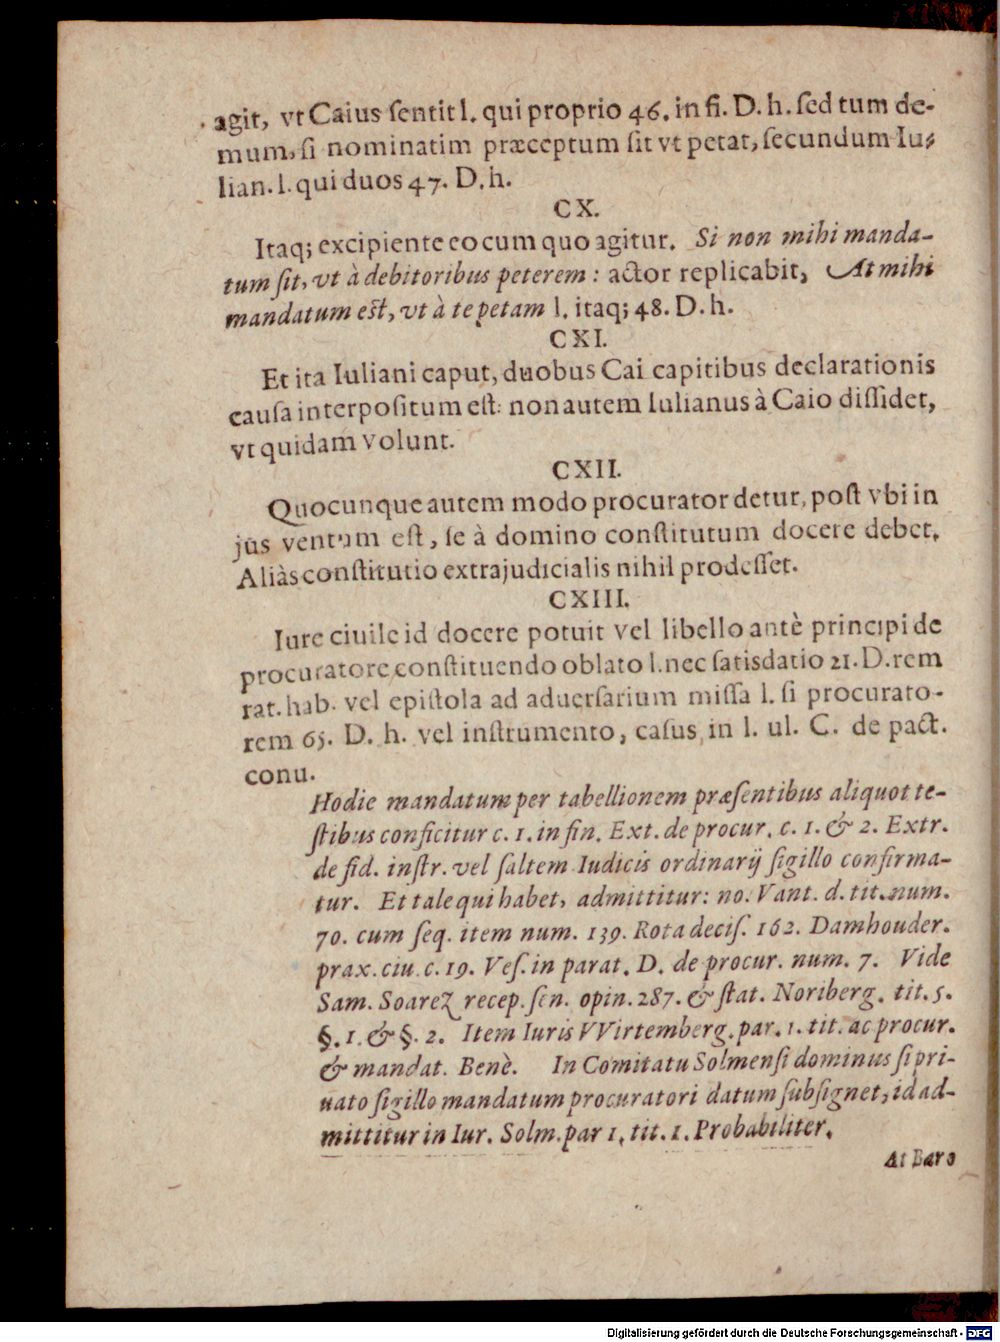 agit, vt Caius ſentit l. qui proprio 46. in fi. D. h. ſed tum de-
mum, ſi nominatim præceptum ſit vt petat, ſecundum Iu-
lian. l. qui duos 47. D. h.
CX.
Itaq; excipiente eo cum quo agitur. Si non mihi manda-
tum ſit, vt à debitoribus peterem : actor replicabit, At mihi
mandatum eſt, vt à te petam l. itaq; 48. D. h.
CXI.
Et ita Iuliani caput, duobus Cai capitibus declarationis
cauſa interpoſitum eſt: non autem Iulianus à Caio diſſidet,
vt quidam volunt.
CXII.
Quocunque autem modo procurator detur, poſt vbi in
jus ventum eſt, ſe à domino conſtitutum docere debet.
Aliàs conſtitutio extrajudicialis nihil prodeſſet.
CXIII.
Iure ciuile id docere potuit vel libello antè principi de
procuratore conſtituendo oblato l. nec ſatisdatio 21. D. rem
rat. hab. vel epiſtola ad aduerſarium miſſa l. ſi procurato-
rem 65. D. h. vel inſtrumento, caſus in l. ul. C. de pact.
conu.
Hodie mandatum per tabellionem præſentibus aliquot te-
ſtibus conficitur c. 1. in fin. Ext. de procur. c. 1. & 2. Extr.
de fid. inſtr. vel ſaltem Iudicis ordinarij ſigillo confirma-
tur. Et tale qui habet, admittitur: no. Vant. d. tit. num.
70. cum ſeq. item num. 139. Rota deciſ. 162. Damhouder.
prax. ciu. c. 19. Veſ. in parat. D. de procur. num. 7. Vide
Sam. Soarez recep. ſen. opin. 287. & ſtat. Noriberg. tit. 5.
§. 1. & §. 2. Item Iuris VVirtemberg. par. 1. tit. ac procur.
& mandat. Benè. In Comitatu Solmenſi dominus ſi pri-
uato ſigillo mandatum procuratori datum ſubſignet, id ad-
mittitur in Iur. Solm. par 1. tit. 1. Probabiliter.
At Baro
Digitalisierung gefördert durch die Deutsche Forschungsgemeinschaft - DFG